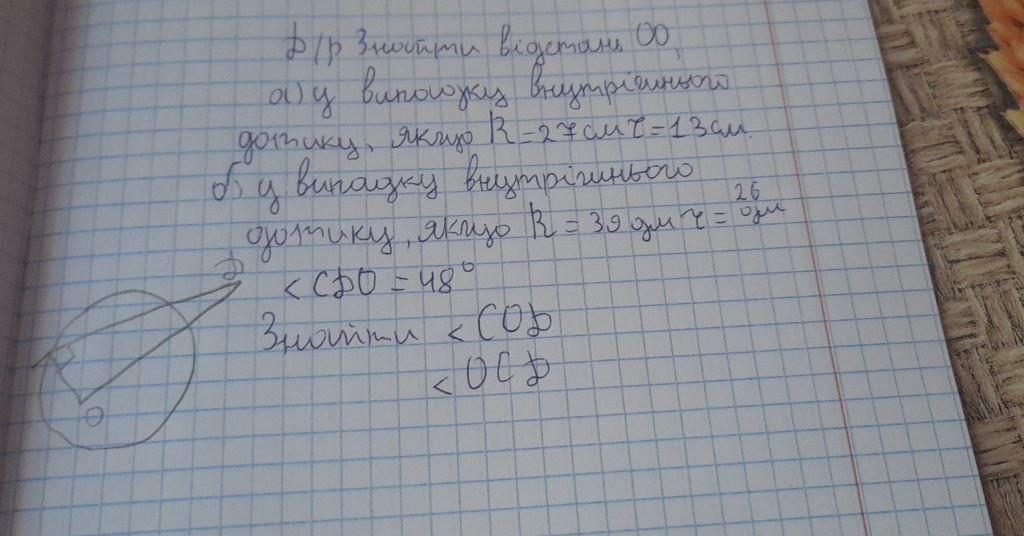 D/р Знайти відстань OO₁
а) у випадку внутрішнього
дотику, якщо R = 27 см r = 13 см.
б) у випадку внутрішнього
дотику, якщо R = 39 дм r = 26 дм
D
< CDO = 48°
Знайти < COD
< OCD
O